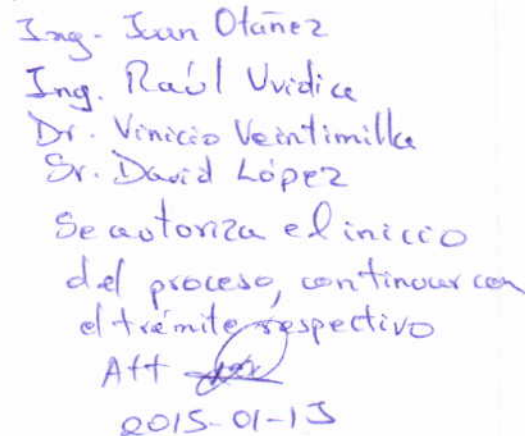 Ing. Juan Otáñez
Ing. Raúl Uvidia
Dr. Vinicio Veintimilla
Sr. David López
Se autoriza el inicio
del proceso, continuar con
el trámite respectivo
Att
2015-01-13